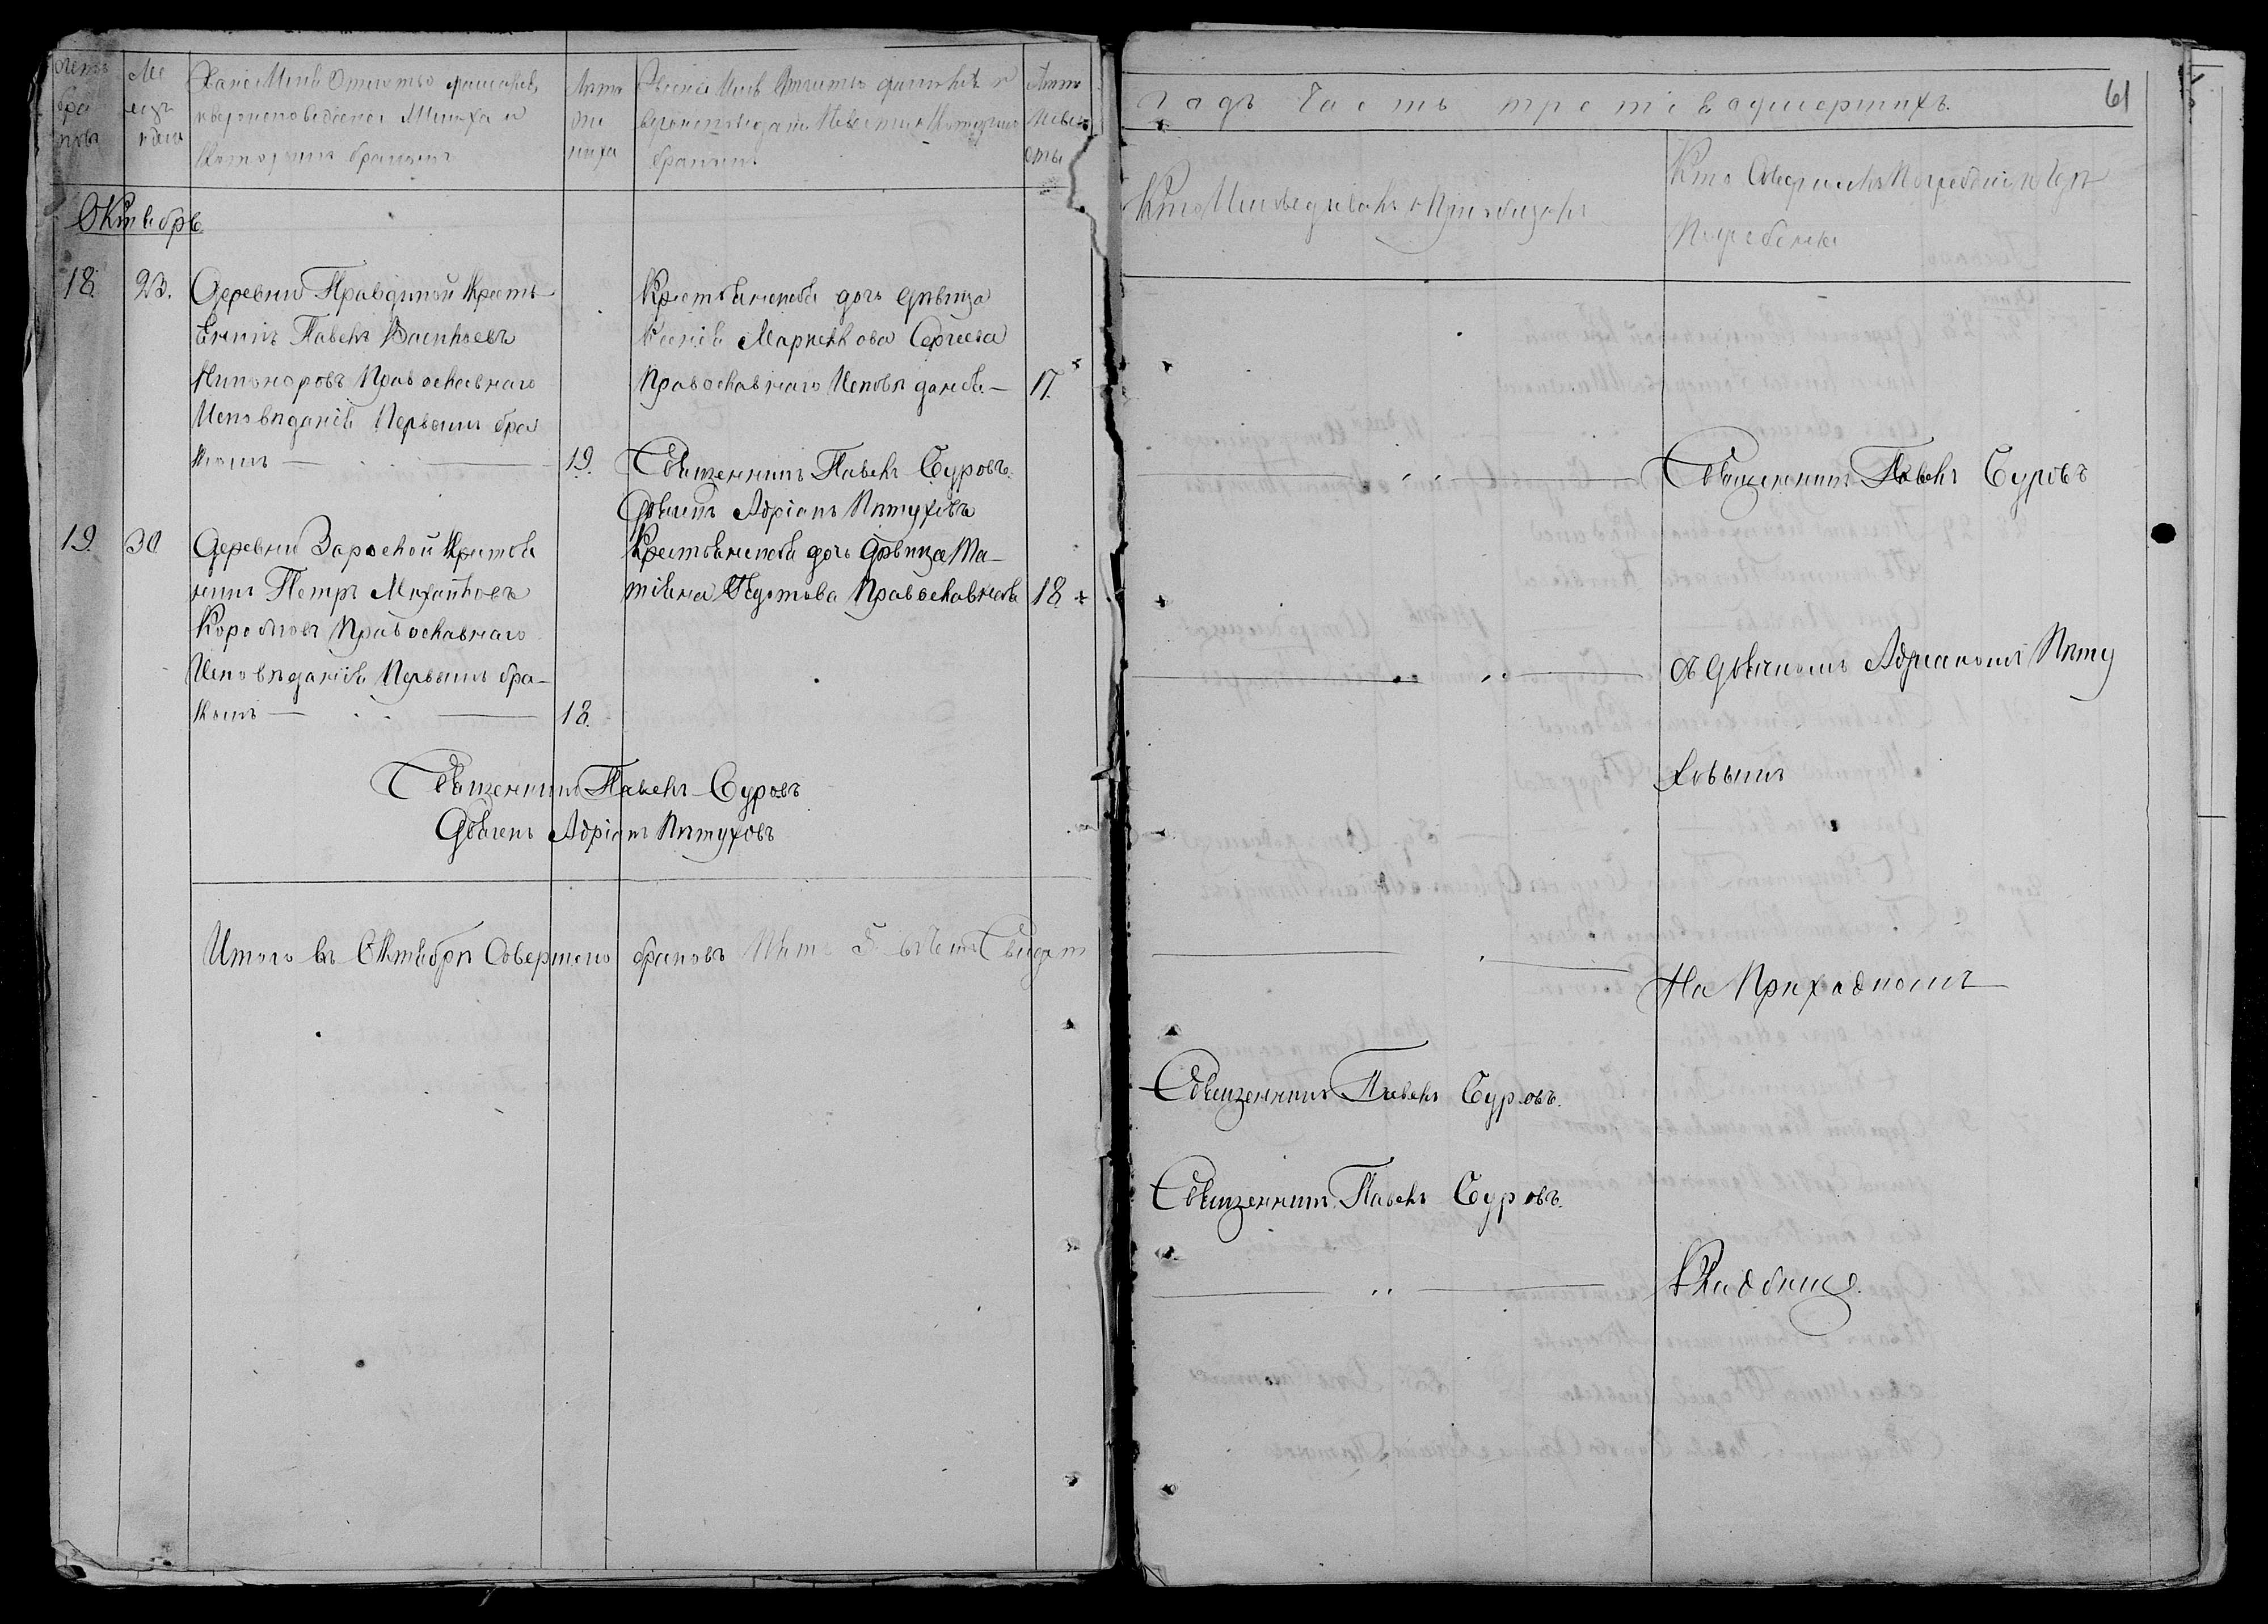 Счетъ бра ковъ
Ме сяцъ и день
Званіе Имя Отчество фамилія
и вероисповѣданіе Жениха и
Которымъ бракомъ
Лета Же ниха
Званіе Имя Отчество фамилія и
вероисповедание Невесты и Которымъ
бракомъ
Лета Невес ты
Октябрь
18. 23. Деревни Правдиной Кресть
янинъ Павелъ Васильевъ
Никоноровъ Православнаго
Исповѣданія Первымъ бра
комъ — 19.
Крестьянская дочь Дѣвица
Ксенія Маркеллова Сергеева
Православнаго Исповѣданія. — 17.
Священникъ Павелъ Суровъ.
Дьячекъ Адріанъ Пѣтуховъ
19. 30 Деревни Зарской Кристья
нинъ Петръ Михайловъ
Коробковъ Православнаго
Исповѣданія Первымъ бра-
комъ — 18.
Крестьянская дочь Дѣвица Та-
тіяна Пустова Православная 18
Священникъ Павелъ Суровъ
Дьячекъ Адріанъ Пѣтуховъ
Итого въ Октябрѣ Совершено браковъ Пять 5.
годъ Часть третія о адмершихъ. 61
Кто Исповедывалъ и Приобщалъ
Кто Совершалъ Погребение и Гдѣ
Погребены
Священникъ Павелъ Суровъ
съ Дьячкомъ Адрианомъ Пѣту
ховымъ
На Приходномъ
Священникъ Павелъ Суровъ.
Священникъ Павелъ Суровъ.
Кладбище.